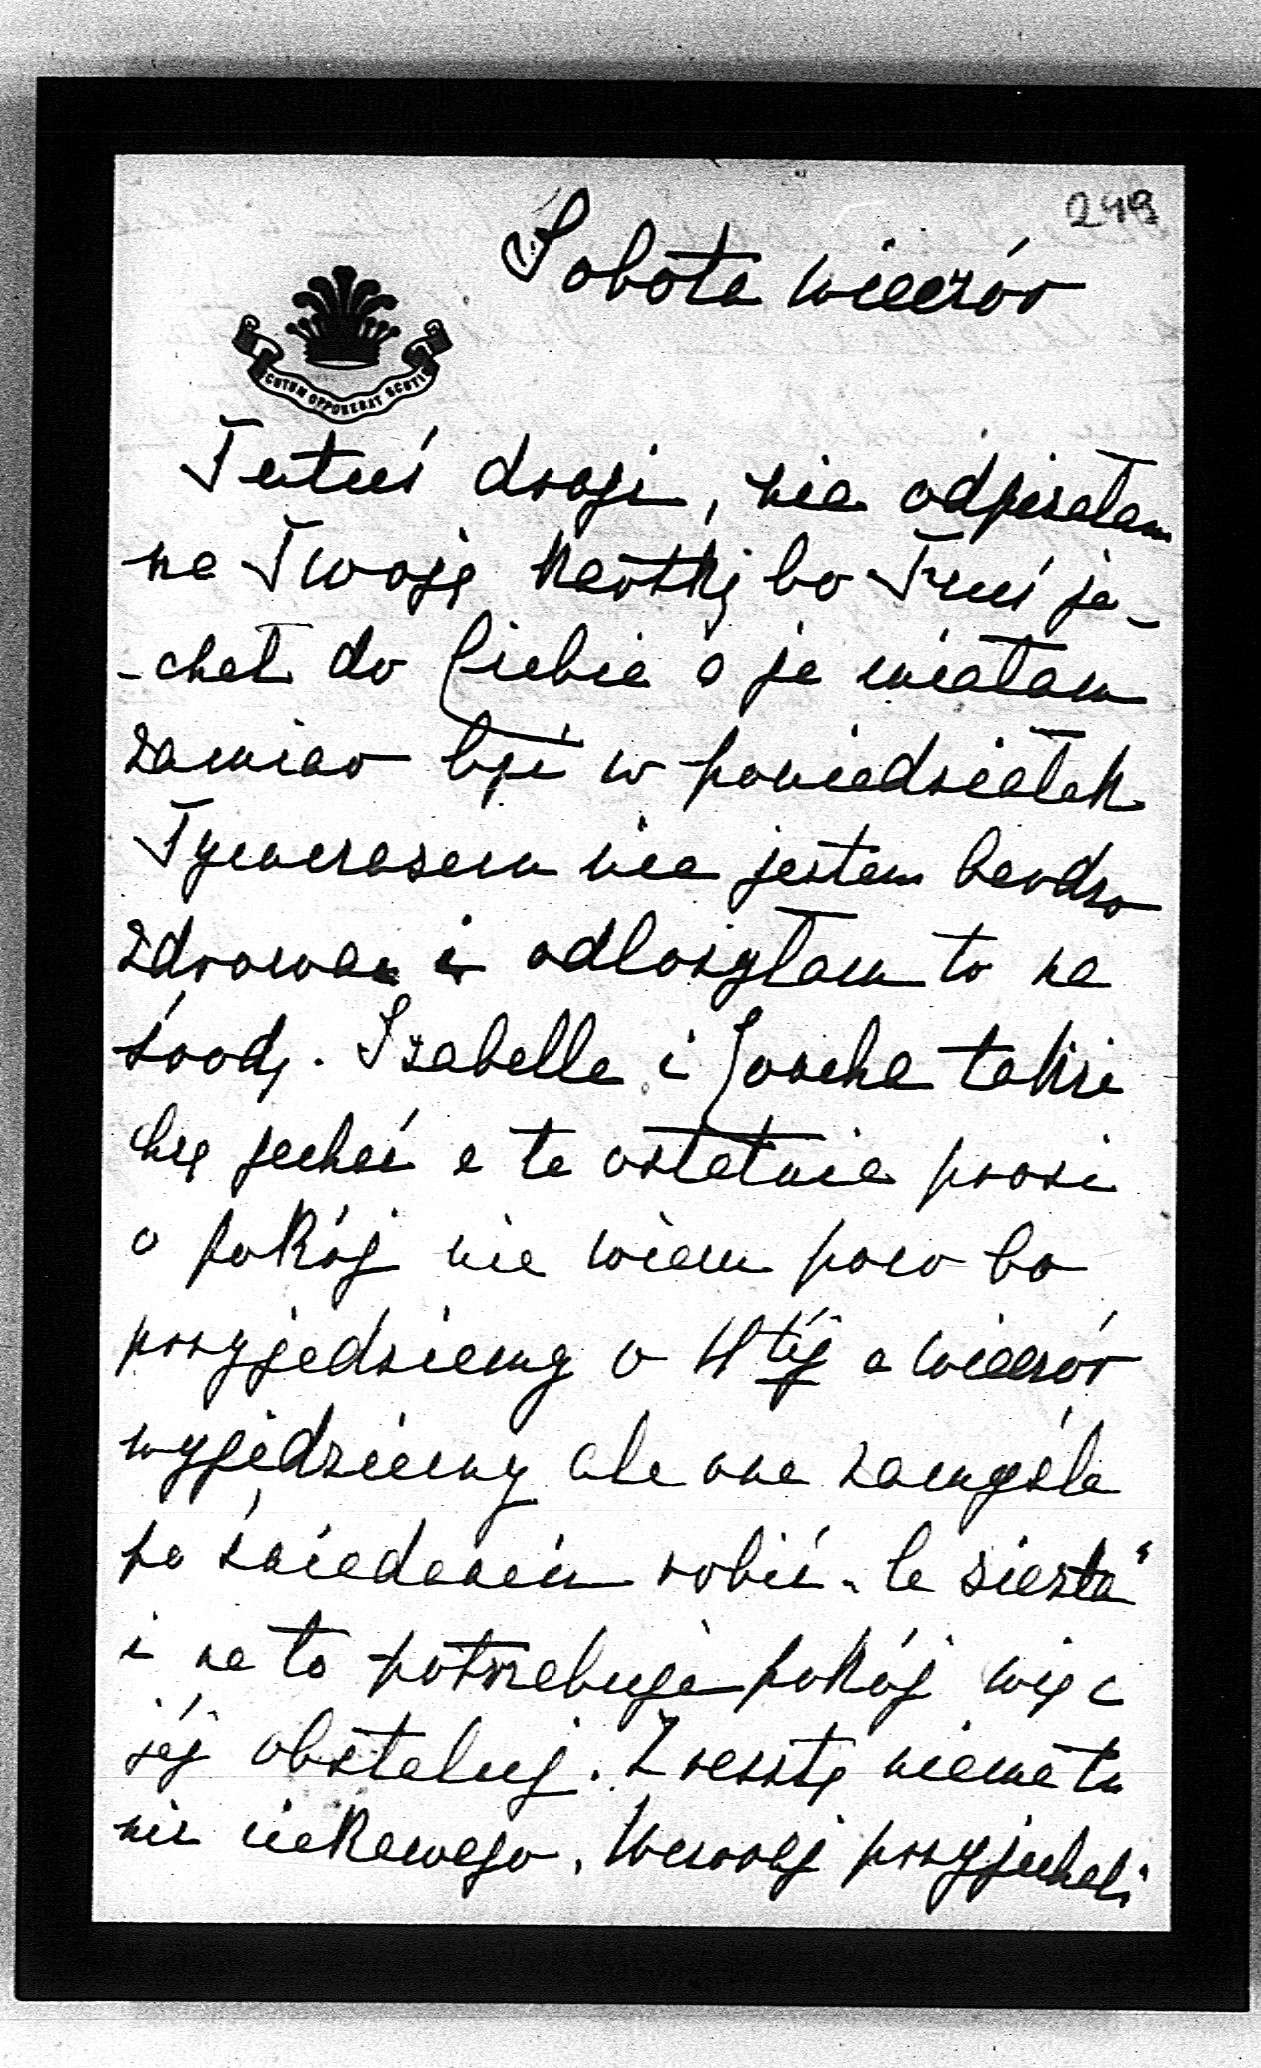 249
Sobota wieczór
SCUTUM OPPONEBAT SCUTIS
Tatuś drogi, nie odpisałam
na Twoją kartkę bo Truś ja-
-chał do Ciebie a ja miałam
zamiar być w poniedziałek
Tymczasem nie jestem bardzo
zdrowa i odłożyłam to na
środę. Izabella i Joncha także
chcą jechać a ta ostatnia prosi
o pokój nie wiem poco bo
przyjedziemy o 11téj a wieczór
wyjédziemy ale ona zamyśla
po śniedaniu robić „la siesta"
i na to potrzebuje pokój więc
jéj obsteluj. Zresztą niema tu
nic ciekawego. Wczoraj przyjechali